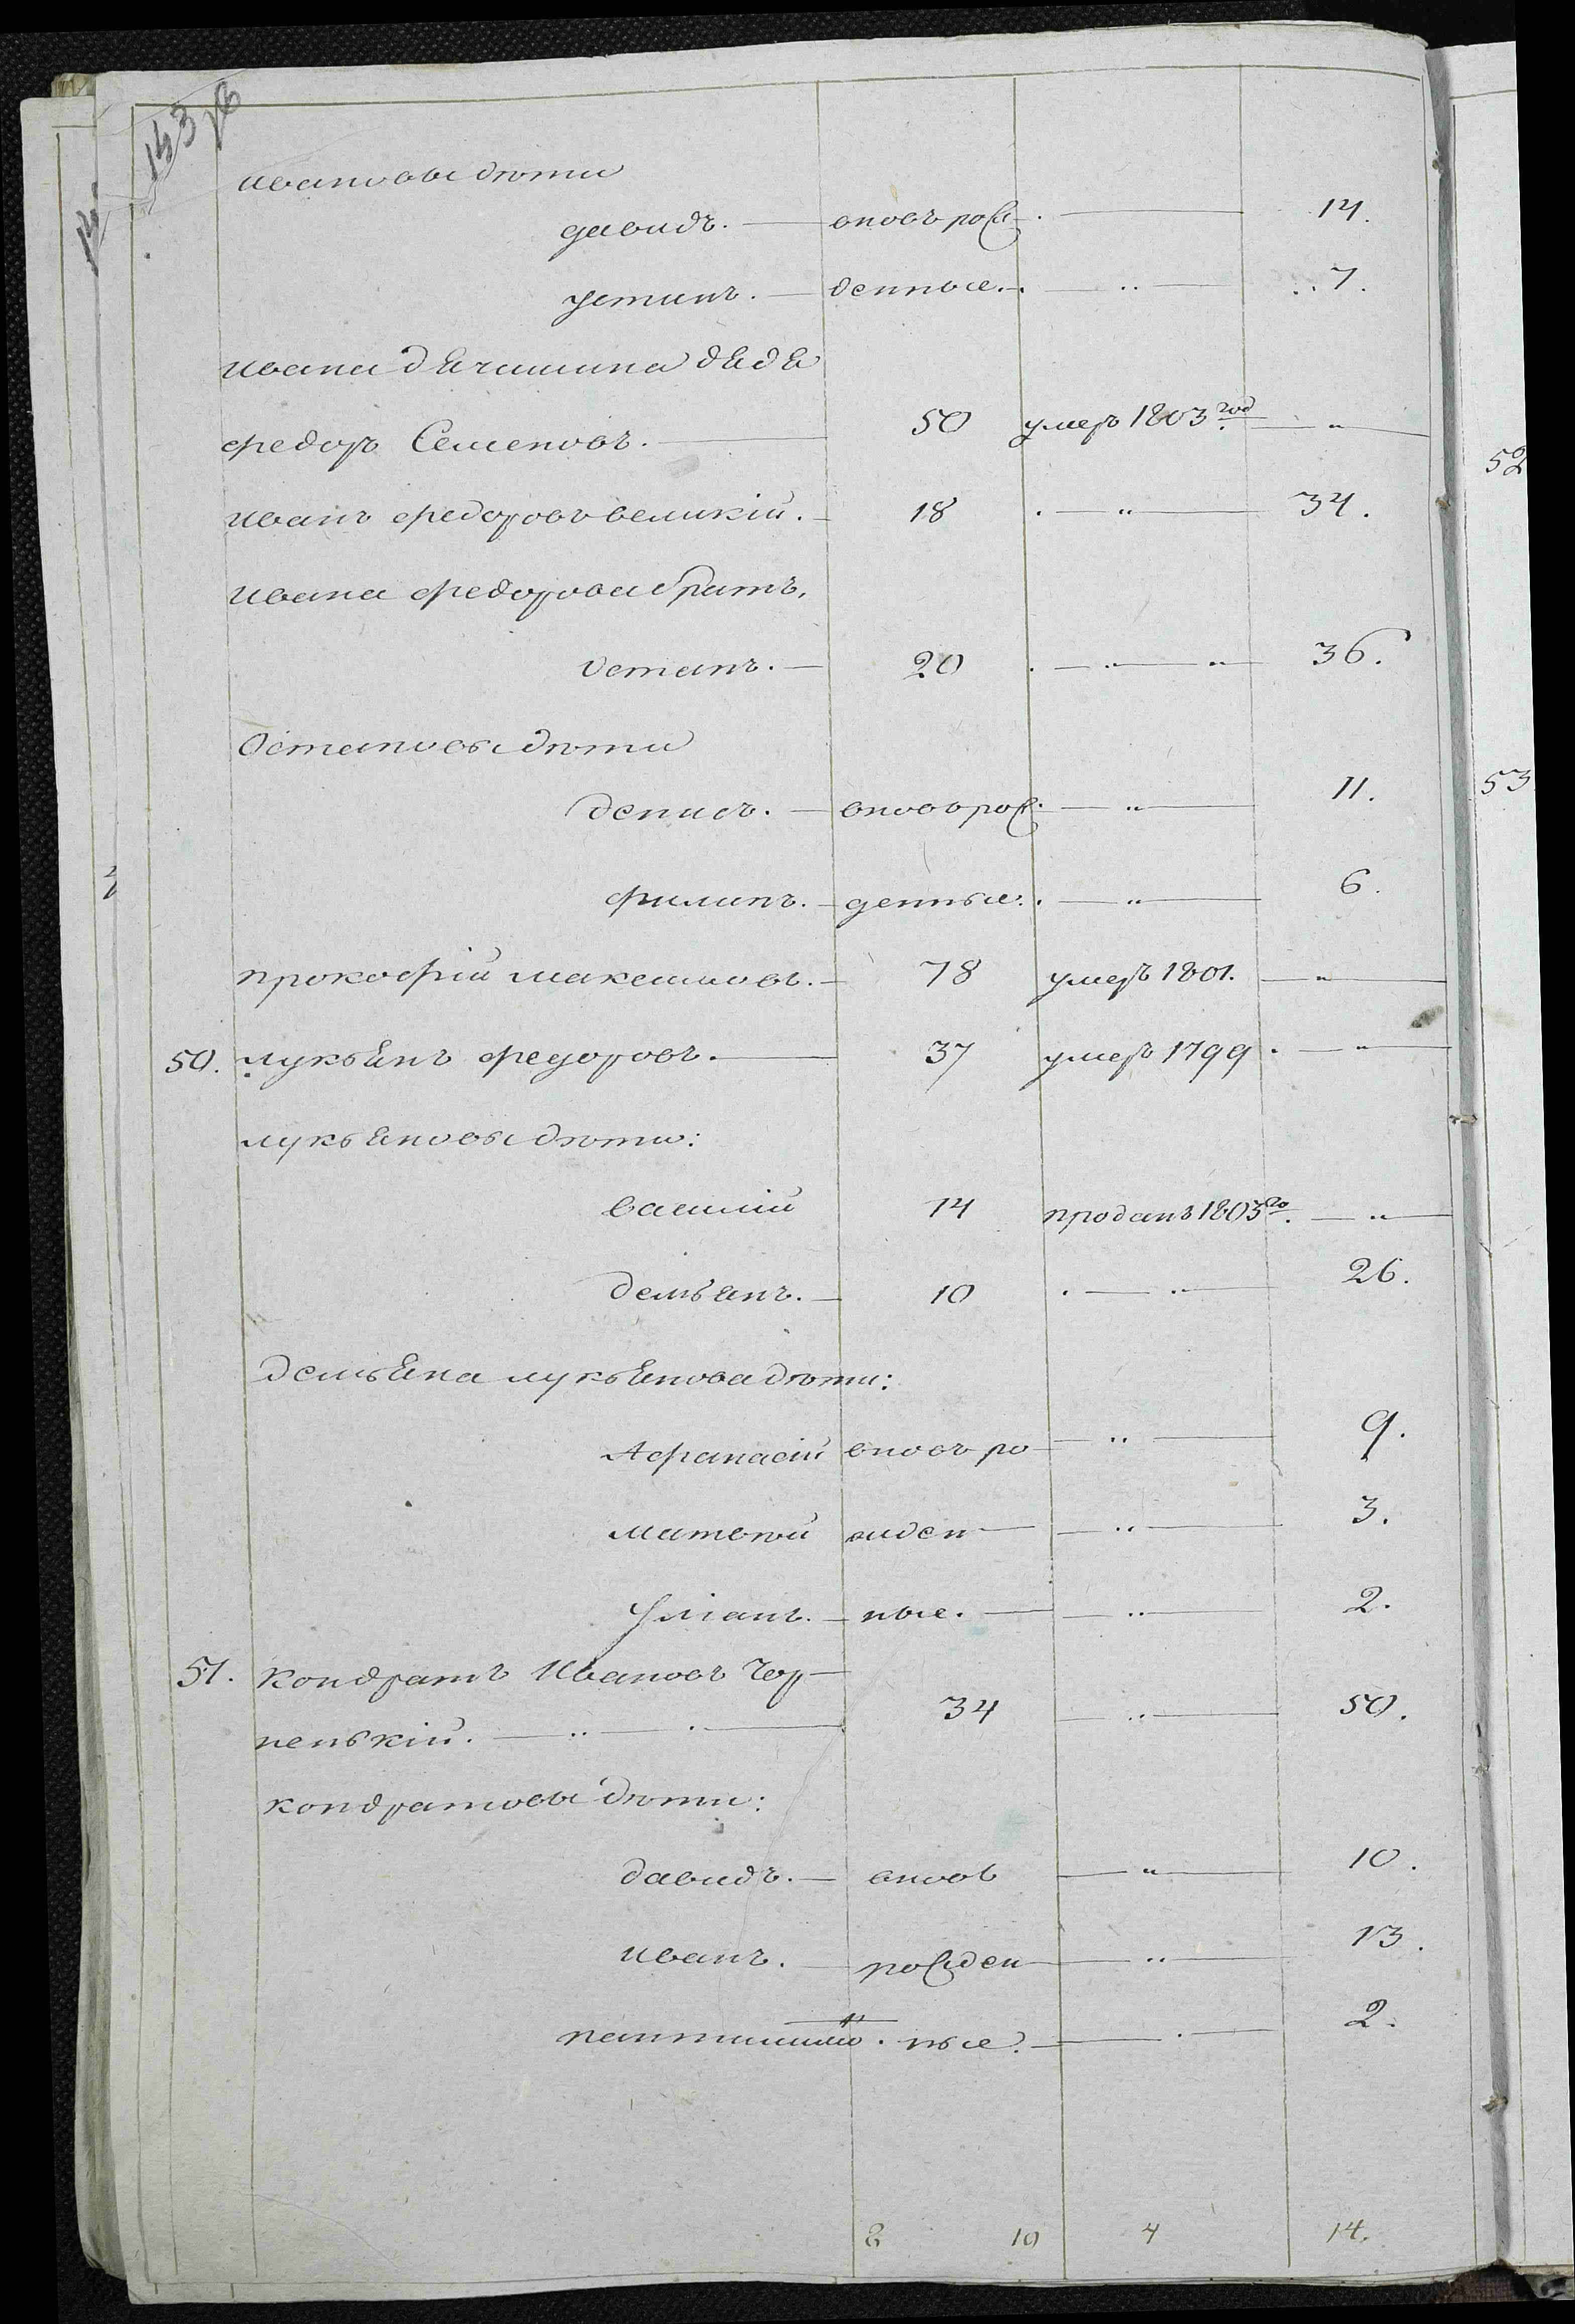 143 об
Ивановы дѣти
давидъ. — вновь рож- — 14.
устинъ. — денные. — " — 7.
ивана дячишина дядя
федоръ Семеновъ. — 50 умеръ 1803 год — "
иванъ федоровъ великій. — 18 — " — 34.
ивана федорова братъ,
остапъ. — 20 — " — " — 36.
Остаповы дѣти
денисъ. — вновь рож. — " — 11.
филипъ. — денные. — " — 6.
прокофій максимовъ. — 78 умеръ 1801. — "
50. лукьянъ федоровъ. — 37 умеръ 1799. — "
лукьяновы дѣти:
василій 14 проданъ 1803го. — "
демьянъ. — 10 — " — 26.
демьяна лукьянова дѣти:
Афанасій вновь ро — " — 9.
матвѣй жден — " — 3.
Уліанъ. — ные. — " — 2.
51. кондратъ Ивановъ Чер-
ненькій. — " — 34 — " — 50.
кондратовы дѣти:
давидъ. — вновь — " — 10.
иванъ. — рожден — " — 13.
ные. — 2.
8 10 4 14.
52
53